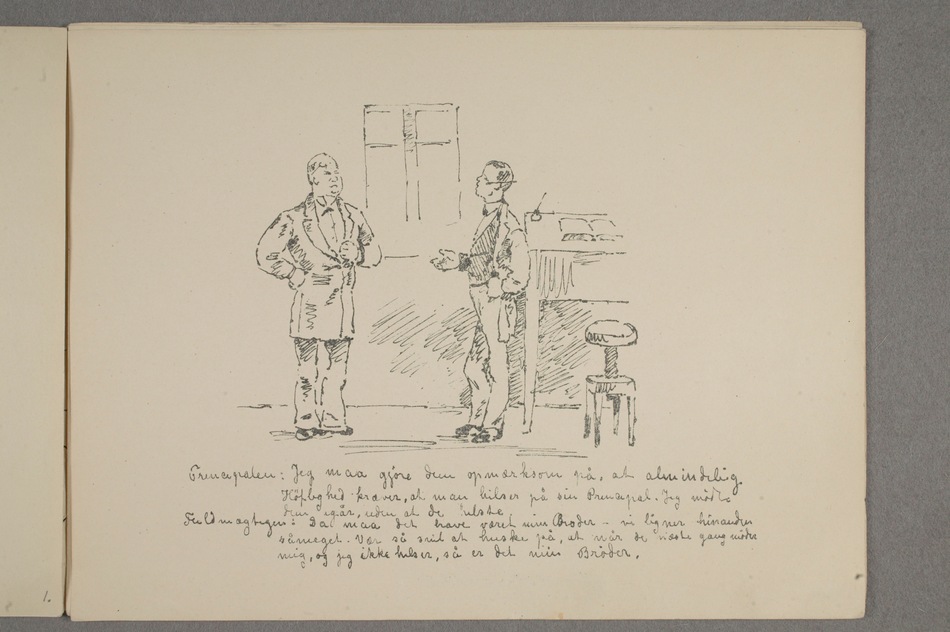 Principalen: Jeg maa gjöre dem opmærksom på, at almindelig
Höflighed kræver, at man hilser på sin Principal. Jeg mödte
dem igår, uden at de hilste.
Fuldmægtigen: Da maa det have været min Broder – vi ligner hinanden
såmeget. Vær så snil at huske på, at når de næste gang möder
mig, og jeg ikke hilser, så er det min Broder.
1.